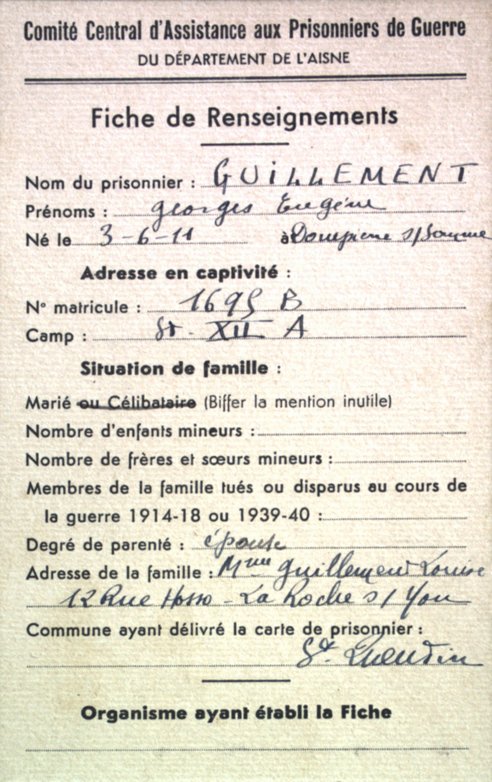 Comité Central d'Assistance aux Prisonniers de Guerre
DU DÉPARTEMENT DE L'AISNE
Fiche de Renseignements
Nom du prisonnier : GUILLEMENT
Prénoms : georges Eugène
Né le 3-6-11 à Dompierre s/Somme
Adresse en captivité :
N° matricule : 1695 B
Camp : St. XII A
Situation de famille :
Marié ou Célibataire (Biffer la mention inutile)
Nombre d'enfants mineurs :
Nombre de frères et sœurs mineurs :
Membres de la famille tués ou disparus au cours de
la guerre 1914-18 ou 1939-40 :
Degré de parenté : épouse
Adresse de la famille : Mme guillement Louise
12 Rue - La Roche s/ Yon
Commune ayant délivré la carte de prisonnier :
St. Quentin
Organisme ayant établi la Fiche